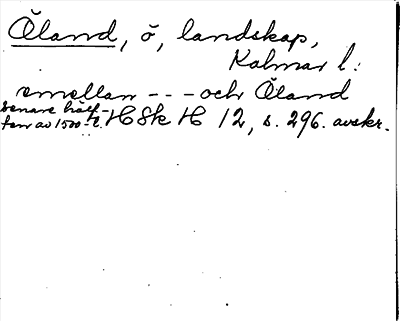 Öland, ö, landskap,
Kalmar l:
emellan --- och Öland
senare hälf-
ten av 1500-t. HSk H 12, s. 296. avskr.